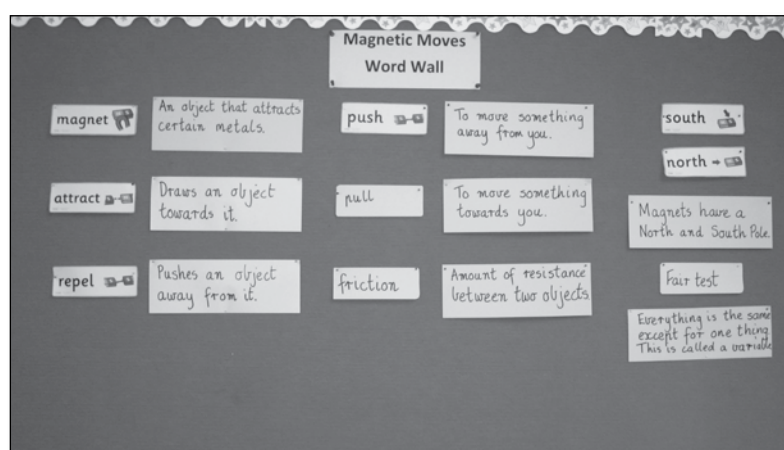 Magnetic Moves
Word Wall
magnet
An object that attracts
certain metals.
attract
Draws an object
towards it.
repel
Pushes an object
away from it.
push
To move something
away from you.
pull
To move something
towards you.
friction
Amount of resistance
between two objects.
south
north
Magnets have a
North and South Pole.
Fair test
Everything is the same
except for one thing.
This is called a variable